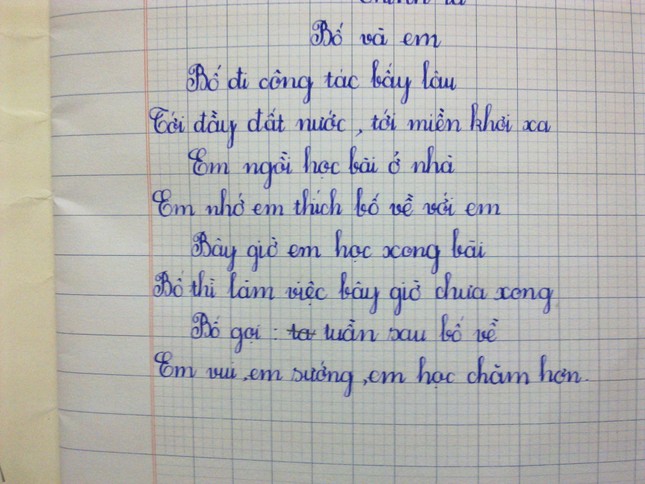 Bố và em
Bố đi công tác bấy lâu
Tới đầy đất nước, tới miền khơi xa
Em ngồi học bài ở nhà
Em nhớ em thích bố về với em
Bây giờ em học xong bài
Bố thì làm việc bây giờ chưa xong
Bố gọi : tuần sau bố về
Em vui, em sướng, em học chăm hơn.